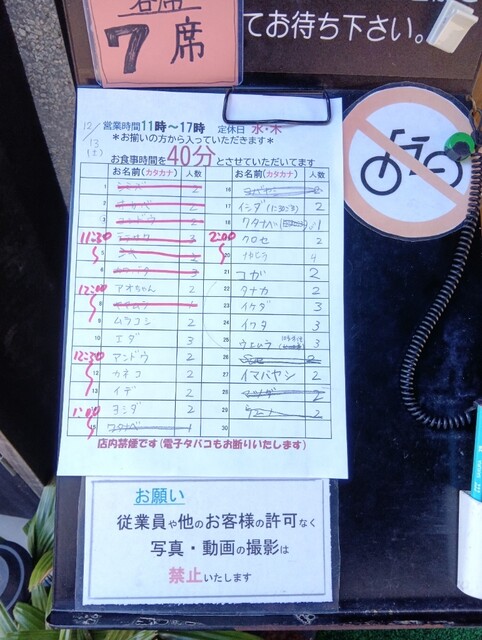 7席
てお待ち下さい。
12/13(土)
営業時間11時～17時 定休日 水・木
＊お揃いの方から入っていただきます＊
お食事時間を40分とさせていただいてます
お名前(カタカナ) 人数 お名前(カタカナ) 人数
1 2 16 2
2 2 17 イシダ 2
3 2 18 ワタナベ 1
11:30 3 2:00 クロセ 2
5 2 20 4
3 21 コガ 2
12:00 アオちゃん 2 22 タナカ 2
8 1 23 イケダ 3
9 ムラコシ 2 24 イワタ 3
10 エダ 3 25 ウエムラ 3
12:30 アンドウ 2 26 2
12 カネコ 2 27 イマバヤシ 2
13 イデ 2 28 2
1:00 ヨシダ 2 29 2
15 ワタナベ 1 30
店内禁煙です(電子タバコもお断りいたします)
お願い
従業員や他のお客様の許可なく
写真・動画の撮影は
禁止いたします